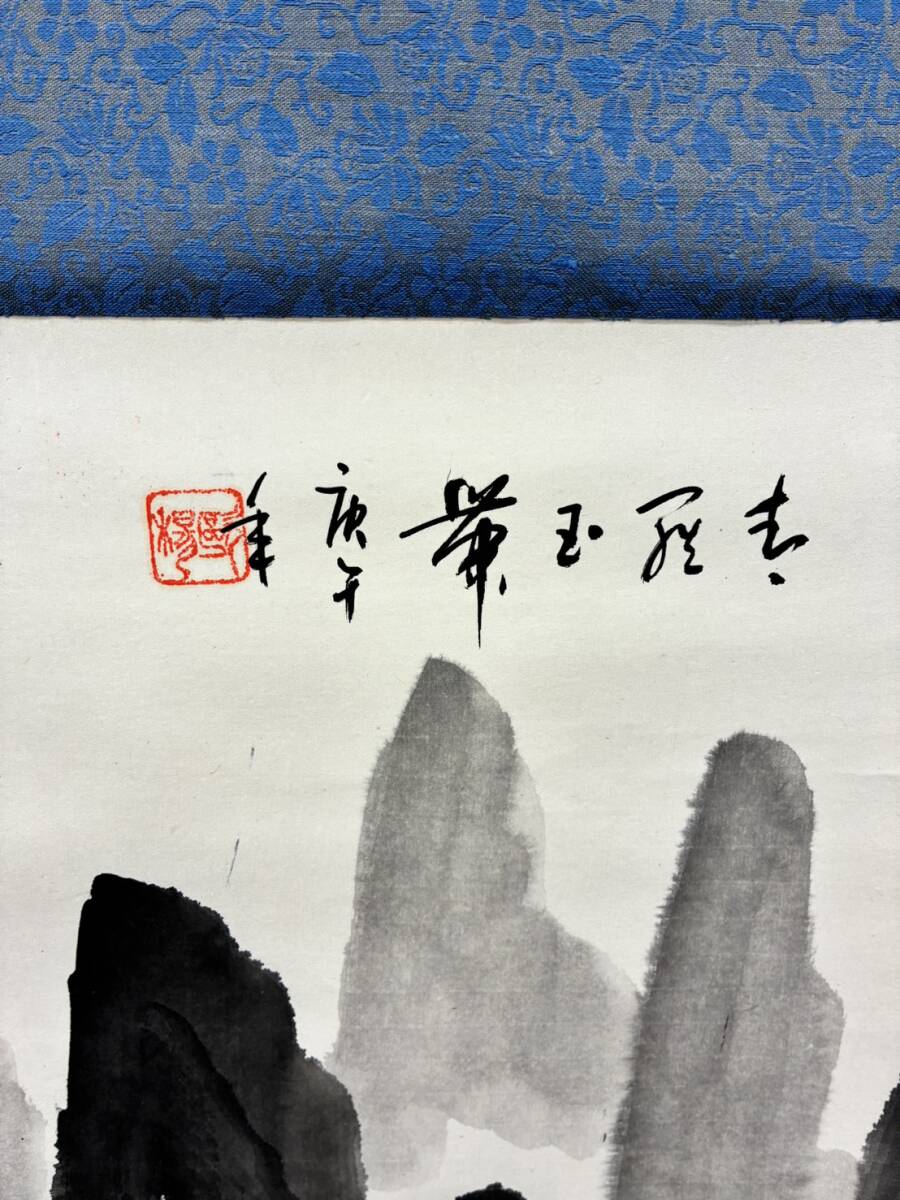 青羅玉帶庚午年